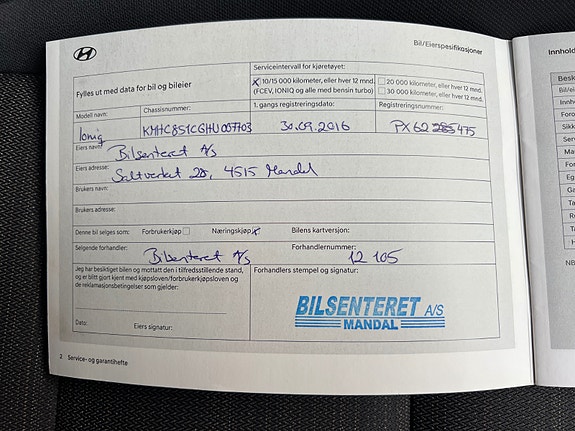 Bil/Eierspesifikasjoner
Fylles ut med data for bil og bileier
Serviceintervall for kjøretøyet:
10/15 000 kilometer, eller hver 12 mnd.
(FCEV, IONIQ og alle med bensin turbo)
20 000 kilometer, eller hver 12 mnd.
30 000 kilometer, eller hver 12 mnd.
Modell navn:
Chassisnummer:
1. gangs registreringsdato:
Registreringsnummer:
Ioniq
KMHC851CGHU007703
30.09.2016
PX62 285475
Eiers navn:
Bilsenteret A/S
Eiers adresse:
4515 Mandal
Brukers navn:
Brukers adresse:
Denne bil selges som:
Forbrukerkjøp
Næringskjøp
Bilens kartversjon:
Selgende forhandler:
Bilsenteret A/S
Forhandlernummer:
12105
Jeg har besiktiget bilen og mottatt den i tilfredsstillende stand,
og er blitt gjort kjent med kjøpsloven/forbrukerkjøpsloven og
de reklamasjonsbetingelser som gjelder:
Forhandlers stempel og signatur:
BILSENTERET A/S
MANDAL
Dato:
Eiers signatur:
2 Service- og garantihefte
Innhold
Besk
Bil/ei
Innh
Foro
Sikk
Serv
Ma
NB